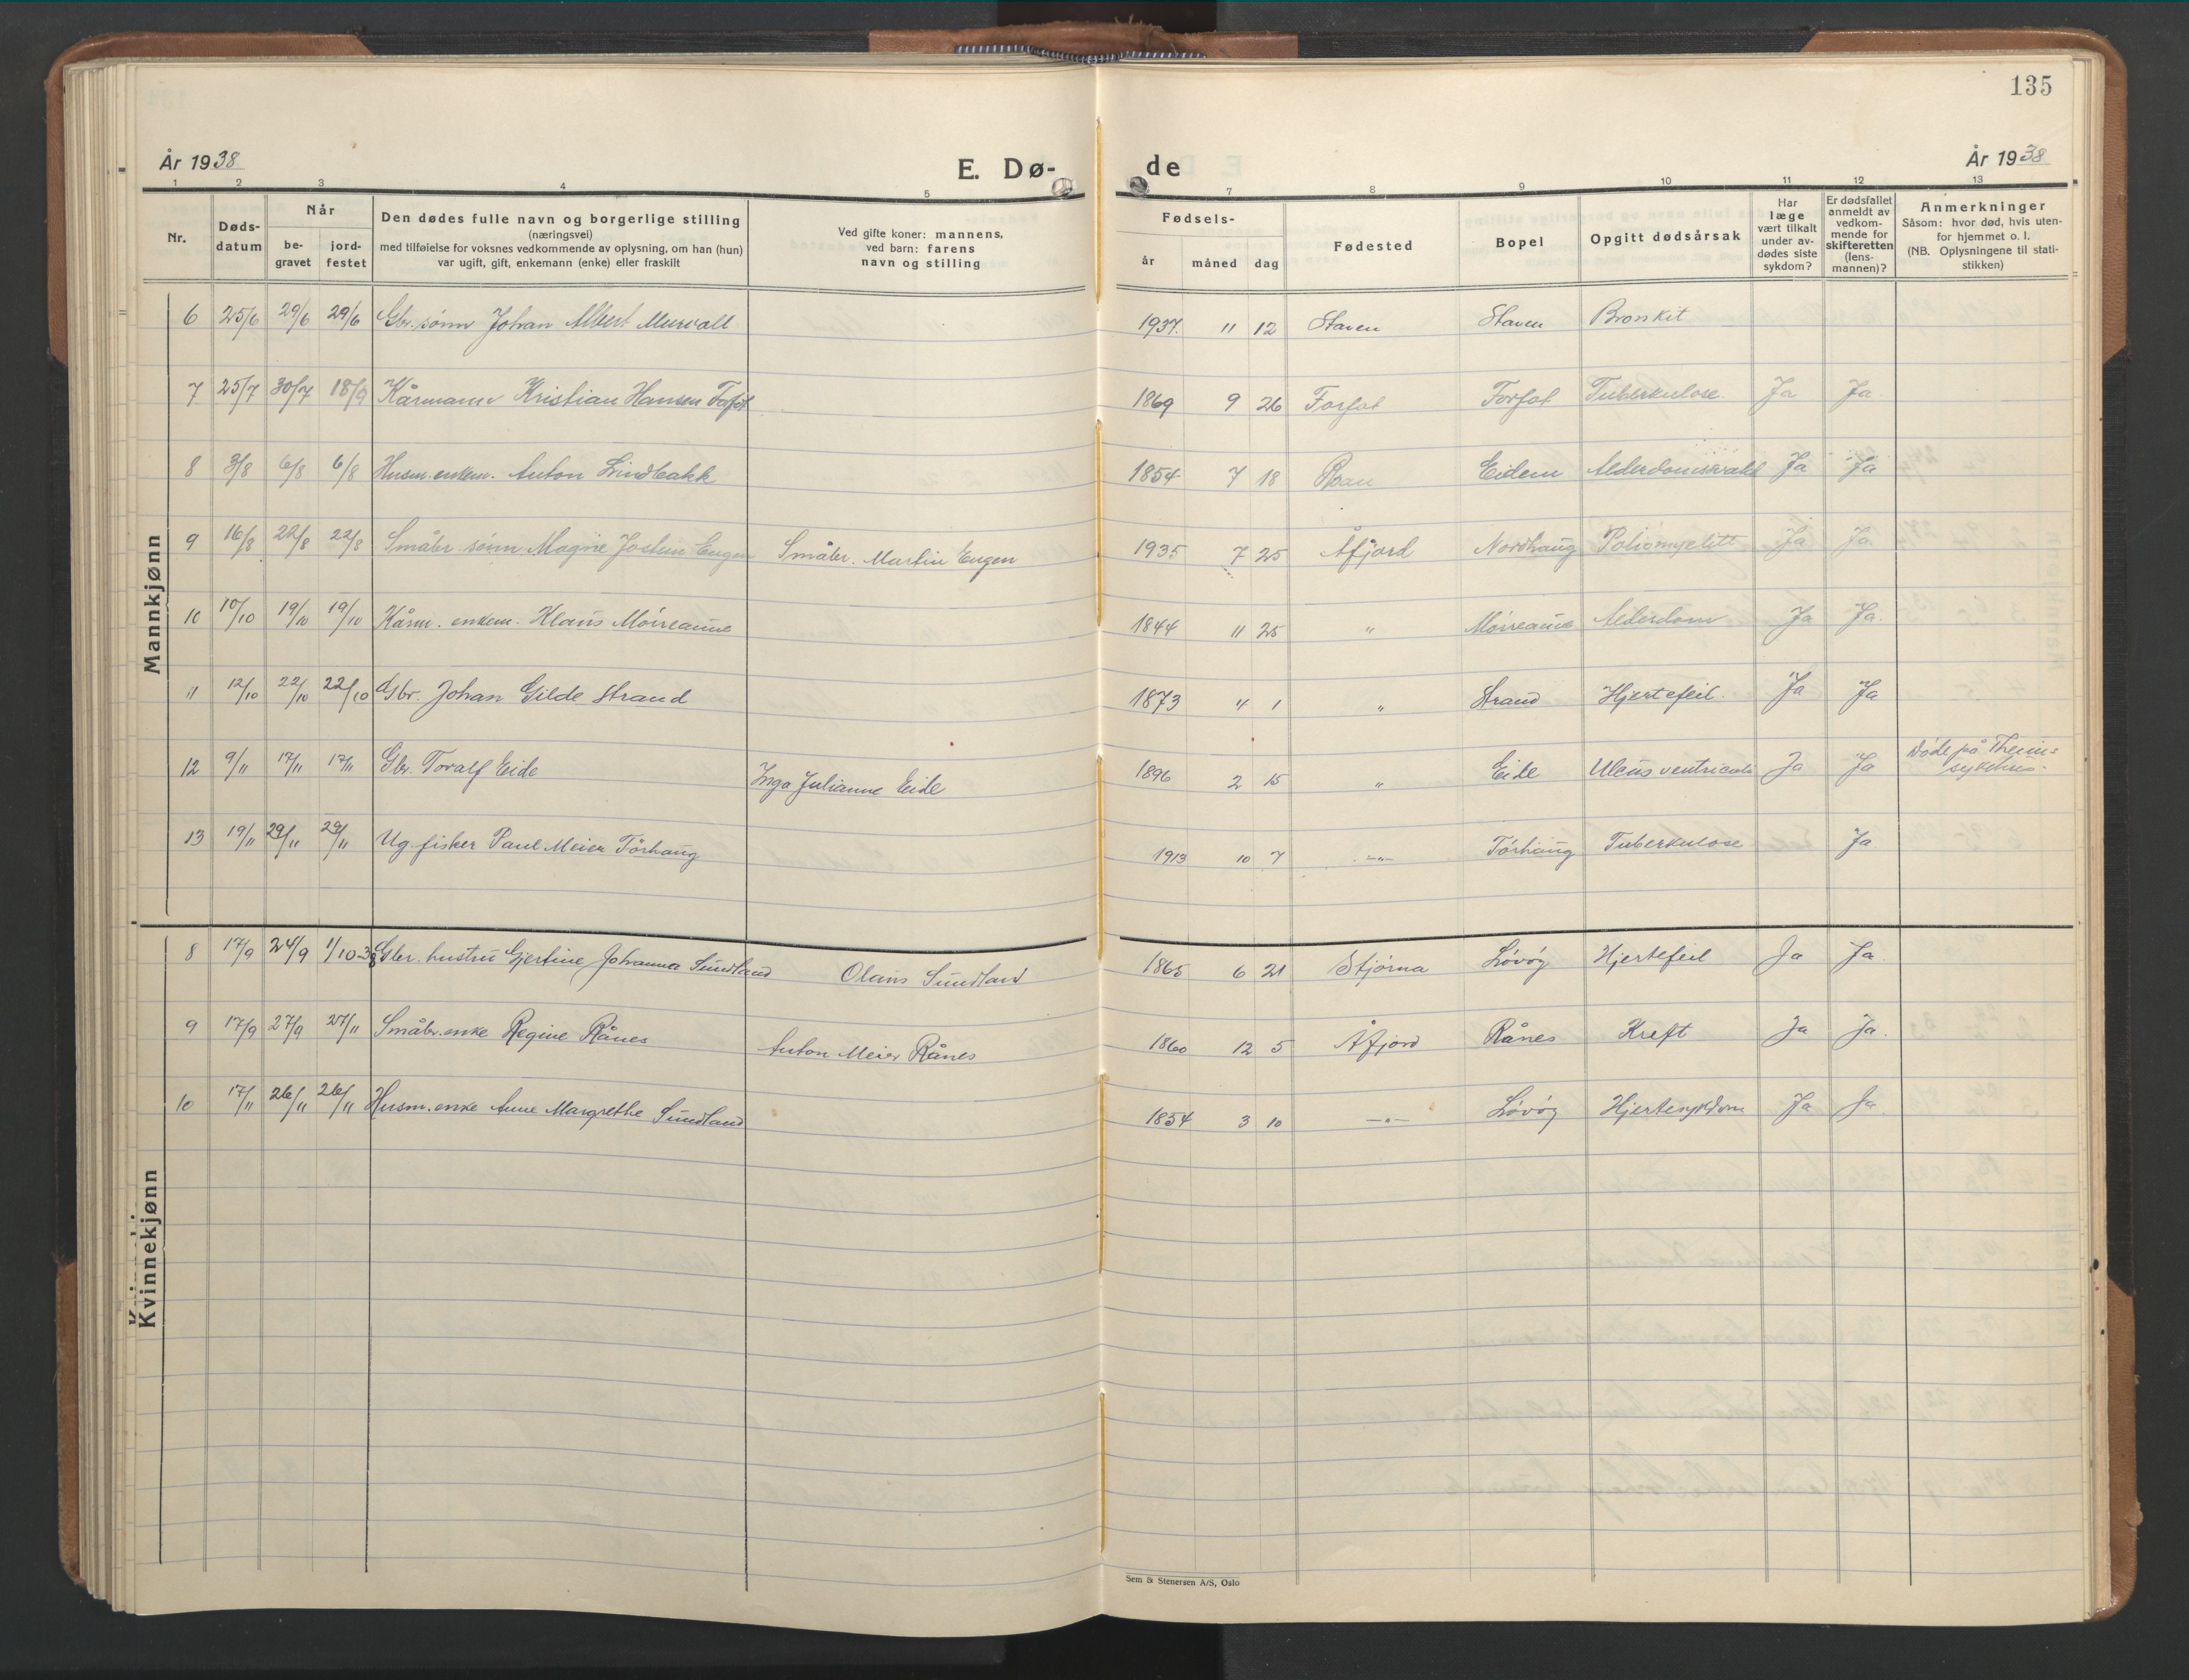 135
År 1938
E. Dø- de
År 1938
1 2 3 4 5 7 8 9 10 11 12 13
Nr.
Døds-
datum
Når
be-
gravet
jord-
festet
Den dødes fulle navn og borgerlige stilling
(næringsvei)
med tilføielse for voksnes vedkommende av oplysning, om han (hun)
var ugift, gift, enkemann (enke) eller fraskilt
Ved gifte koner: mannens,
ved barn: farens
navn og stilling
Fødsels-
år måned dag
Fødested
Bopel
Opgitt dødsårsak
Har
læge
vært tilkalt
under av-
dødes siste
sykdom?
Er dødsfallet
anmeldt av
vedkom-
mende for
skifteretten
(lens-
mannen)?
Anmerkninger
Såsom: hvor død, hvis uten-
for hjemmet o. l.
(NB. Oplysningene til stati-
stikken)
Mannkjønn
6 25/6 29/6 29/6 Gbr. sønn Johan Albert Murvall 1937. 11 12 Staven Staven Bronkit
7 25/7 30/7 18/9 Kårmann Kristian Hansen 1869 9 26 Forfot Forfot Tuberkulose. Ja Ja
8 3/8 6/8 6/8 Husm. enkem. Anton Lindbakk 1854 7 18 Roan Eidem Ja Ja
9 16/8 22/8 22/8 Småbr. sønn Magne Jostein Engen Småbr. Martin Engen 1935 7 25 Åfjord Nordhaug Poliomyelitt Ja Ja
10 10/10 19/10 19/10 Kårm. enkem. Klaus Móireaune 1844 11 25 " Móireaune Alderdom Ja Ja.
11 12/10 22/10 22/10 Gbr. Johan Gilde Strand 1873 4 1 " Strand Hjertefeil. Ja Ja
12 9/11 17/11 17/11 Gbr. Toralf Eide Inga Julianne Eide 1896 2 15 " Eide Ulcus ventriculi Ja Ja Døde på Thems
sykehus.
13 19/11 29/11 29/11 Ug. fisker Paul Meier Tørhaug 1913 10 7 -"- Tórhaug Tuberkulose Ja
Kvinnekjønn
8 17/9 24/9 1/10-38 Gbr. hustru Gjertine Johanna Sundland Olaus Sundland 1865 6 21 Stjórna Lóvóy Hjertefeil Ja Ja
9 17/9 27/9 27/11 Småbr. enke Regine Rånes Anton Meier Rånes 1860 12 5 Åfjord Rånes Kreft Ja Ja.
10 17/11 26/11 26/11 Husm. enke Anne Margrethe Sundland 1854 3 10 -"- Lóvóy Hjertesykdom Ja Ja.
Sem & Stenersen A/S, Oslo